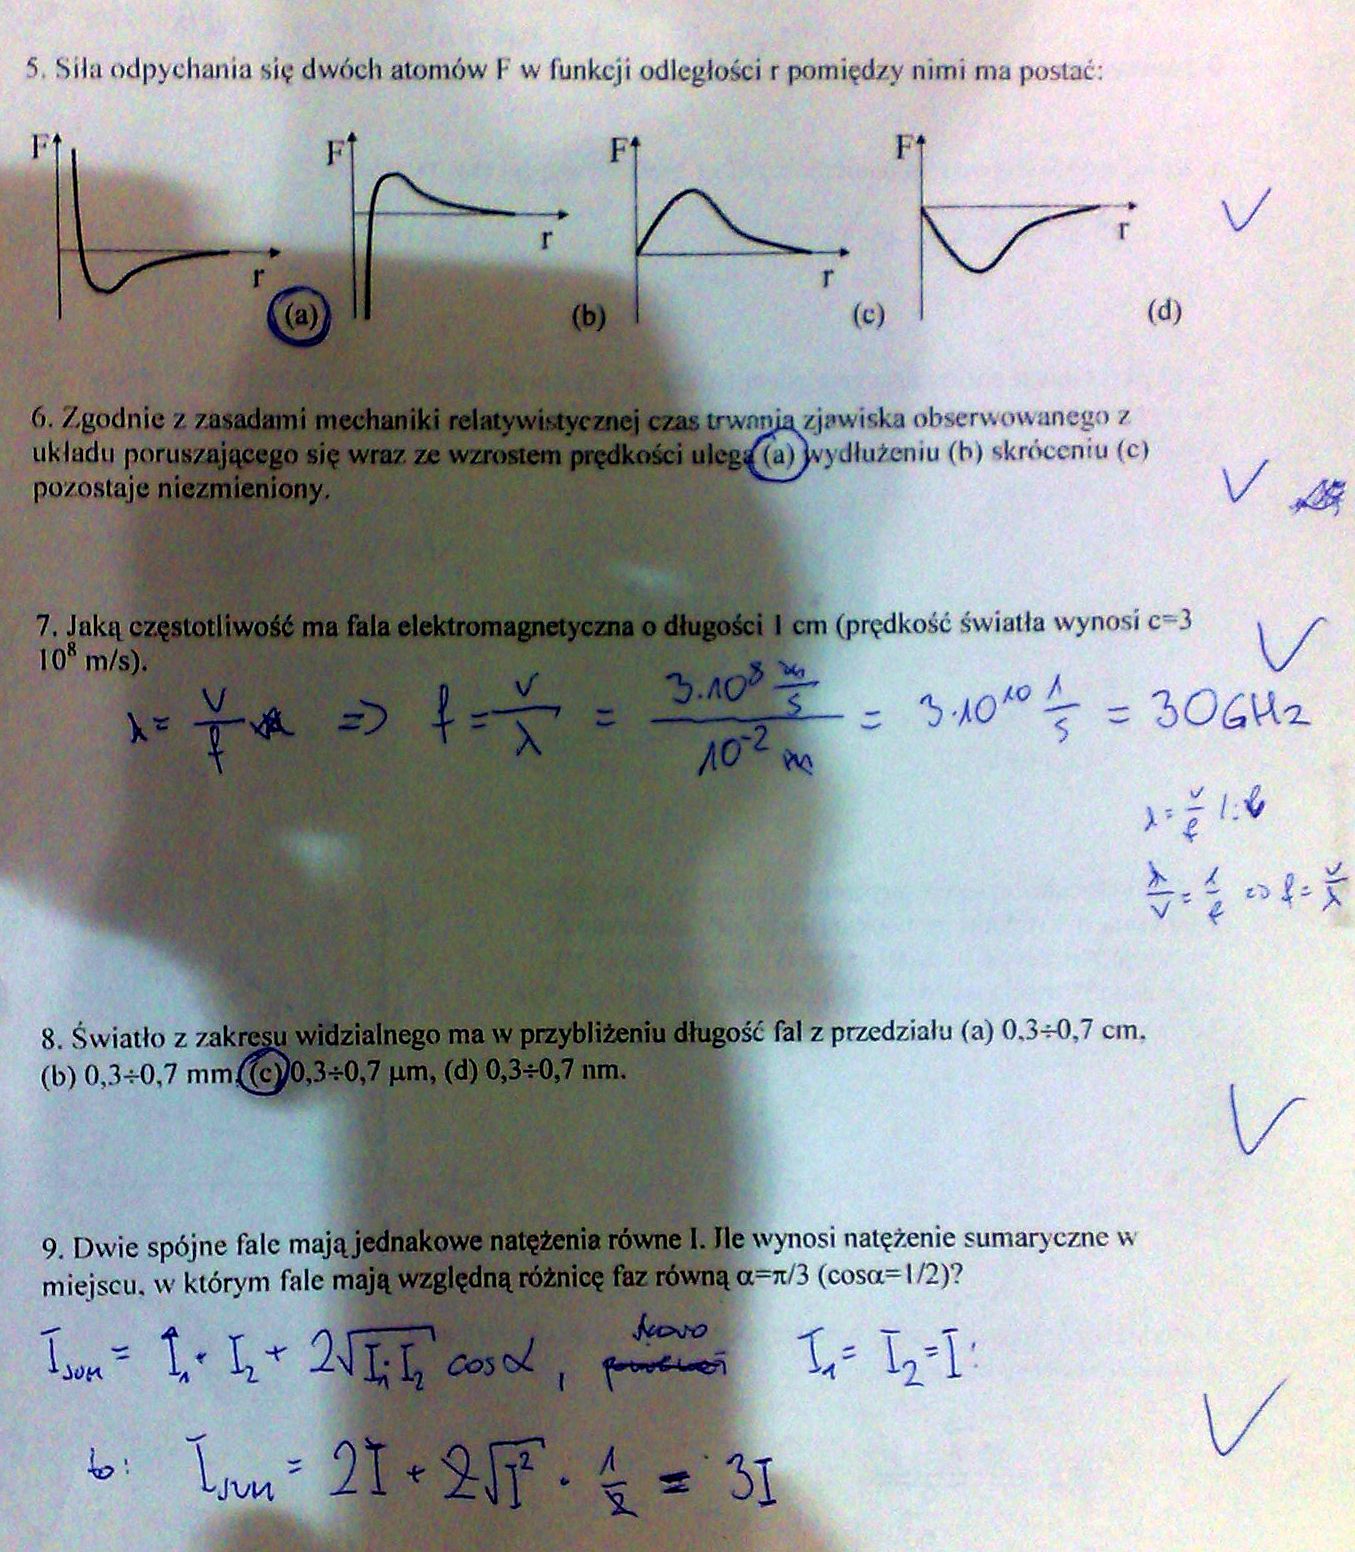 5. Siła odpychania się dwóch atomów F w funkcji odległości r pomiędzy nimi ma postać:
F F F F
r r r r
(a) (b) (c) (d)
6. Zgodnie z zasadami mechaniki relatywistycznej czas trwania zjawiska obserwowanego z
układu poruszającego się wraz ze wzrostem prędkości ulega (a) wydłużeniu (b) skróceniu (c)
pozostaje niezmieniony.
7. Jaką częstotliwość ma fala elektromagnetyczna o długości 1 cm (prędkość światła wynosi c=3
10⁸ m/s).
λ = v/f => f = v/λ = 3·10⁸ m/s / 10⁻² m = 3·10¹⁰ 1/s = 30GHz
λ = v/f
λ/v = 1/f <=> f = v/λ
8. Światło z zakresu widzialnego ma w przybliżeniu długość fal z przedziału (a) 0,3÷0,7 cm,
(b) 0,3÷0,7 mm, (c) 0,3÷0,7 μm, (d) 0,3÷0,7 nm.
9. Dwie spójne fale mają jednakowe natężenia równe I. Ile wynosi natężenie sumaryczne w
miejscu, w którym fale mają względną różnicę faz równą α=π/3 (cosα=1/2)?
I_sum = I₁ + I₂ + 2√(I₁·I₂) cosα , skoro I₁ = I₂ = I
to: I_sum = 2I + 2√(I²) · 1/2 = 3I